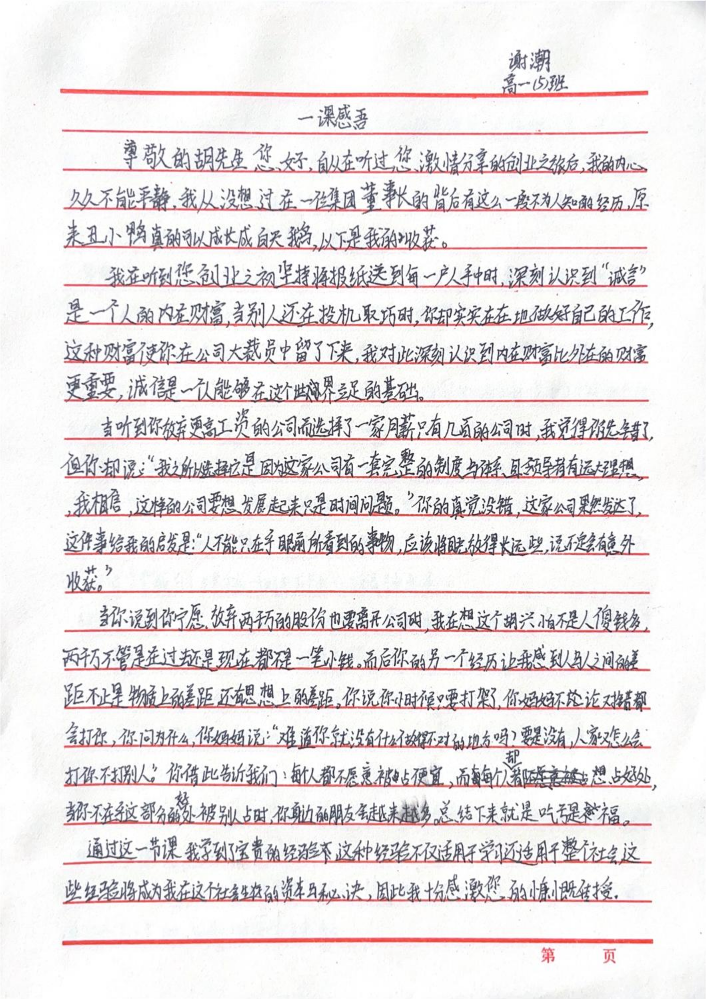 谢潮
高一(5)班
一课感吾
尊敬的胡先生您好,自从在听过您激情分享的创业之旅后,我的内心
久久不能平静,我从没想过在一位集团董事长的背后有这么一段不为人知的经历,原
来丑小鸭真的可以成长成白天鹅,以下是我的收获。
我在听到您创业之初坚持将报纸送到每一户人手中时,深刻认识到“诚信”
是一个人的内在财富,当别人还在投机取巧时,你却实实在在地做好自己的工作,
这种财富使你在公司大裁员中留了下来,我对此深刻认识到内在财富比外在的财富
更重要,诚信是一人能够在这个世界立足的基础。
当听到你放弃更高工资的公司而选择了一家月薪只有几百的公司时,我觉得你选错了,
但你却说:“我之所以选择它是因为这家公司有一套完整的制度与体系,且领导者有远大理想
,我相信,这样的公司要想发展起来只是时间问题。”你的直觉没错,这家公司果然发达了,
这件事给我的启发是:“人不能只在乎眼前所看到的事物,应该将眼光放得长远些,说不定会有意外
收获。”
当你说到你宁愿放弃两千万的股份也要离开公司时,我在想这个胡兴怕不是人傻钱多,
两千万不管是在过去还是现在都不是一笔小钱。而后你的另一个经历让我感到人与人之间的差
距不止是物质上的差距还有思想上的差距。你说你小时候只要打架了,你妈妈不论论对错都
会打你,你问为什么,你妈妈说:“难道你就没有什么做得不对的地方吗?要是没有,人家又怎么会
打你不打别人?”你借此告诉我们:每个人都不愿意被占便宜,而每个人却都想占好处,
当你不在乎这部分的好处被别人占时,你身边的朋友会越来越多。总结下来就是吃亏是福。
通过这一节课我学到了宝贵的经验,这种经验不仅适用于学习还适用于整个社会,这
些经验将成为我在这个社会生存的资本与秘诀,因此我十分感激您的慷慨传授。
第 页